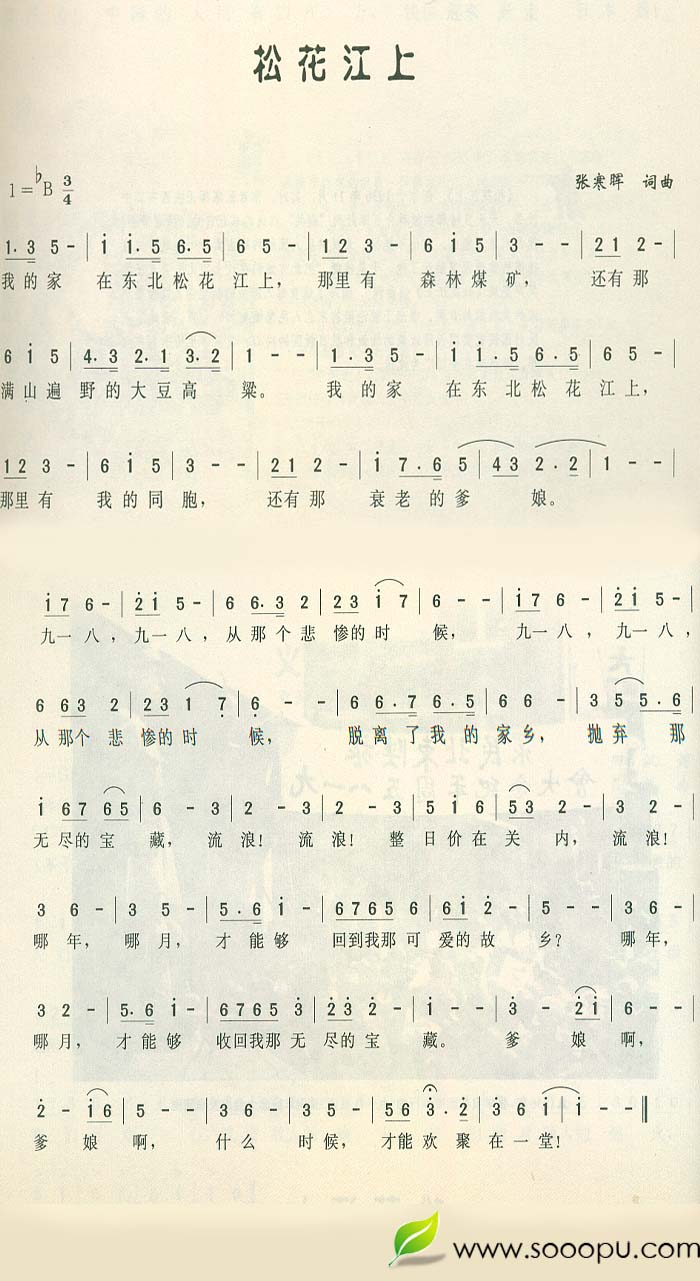 松花江上
1=♭B 3/4
张寒晖 词曲
1·3 5- | i i·5 6·5 | 6 5 - | 1 2 3 - | 6 i 5 | 3 - - | 2 1 2 - |
我的家 在东北松花江上， 那里有 森林煤矿， 还有那
6 i 5 | 4·3 2·1 3·2 | 1 - - | 1·3 5 - | i i·5 6·5 | 6 5 - |
满山遍野的大豆高粱。 我的家 在东北松花江上，
1 2 3 - | 6 i 5 | 3 - - | 2 1 2 - | i 7·6 5 | 4 3 2·2 | 1 - - |
那里有 我的同胞， 还有那 衰老的爹 娘。
i 7 6 - | 2 i 5 - | 6 6·3 2 | 2 3 i 7 | 6 - - | i 7 6 - | 2 i 5 - |
九一八，九一八，从那个悲惨的时候， 九一八，九一八，
6 6 3 2 | 2 3 1 7 | 6 - - | 6 6·7 6·5 | 6 6 - | 3 5 5·6 |
从那个悲惨的时候， 脱离了我的家乡，抛弃那
i 6 7 6 5 | 6 - 3 | 2 - 3 | 2 - 3 | 5 i 6 | 5 3 2 - | 3 2 - |
无尽的宝藏，流浪！流浪！整日价在关内，流浪！
3 6 - | 3 5 - | 5·6 i - | 6 7 6 5 6 | 6 i 2 - | 5 - - | 3 6 - |
哪年，哪月，才能够 回到我那可爱的故乡？哪年，
3 2 - | 5·6 i - | 6 7 6 5 3 | 2 3 2 - | i - - | 3 - 2 i | 6 - - |
哪月，才能够 收回我那无尽的宝藏。爹娘啊，
2 - i 6 | 5 - - | 3 6 - | 3 5 - | 5 6 3·2 | 3 6 i | i - - ‖
爹娘啊， 什么时候，才能欢聚在一堂！
www.sooopu.com